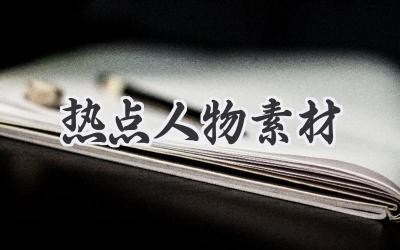 热点人物素材